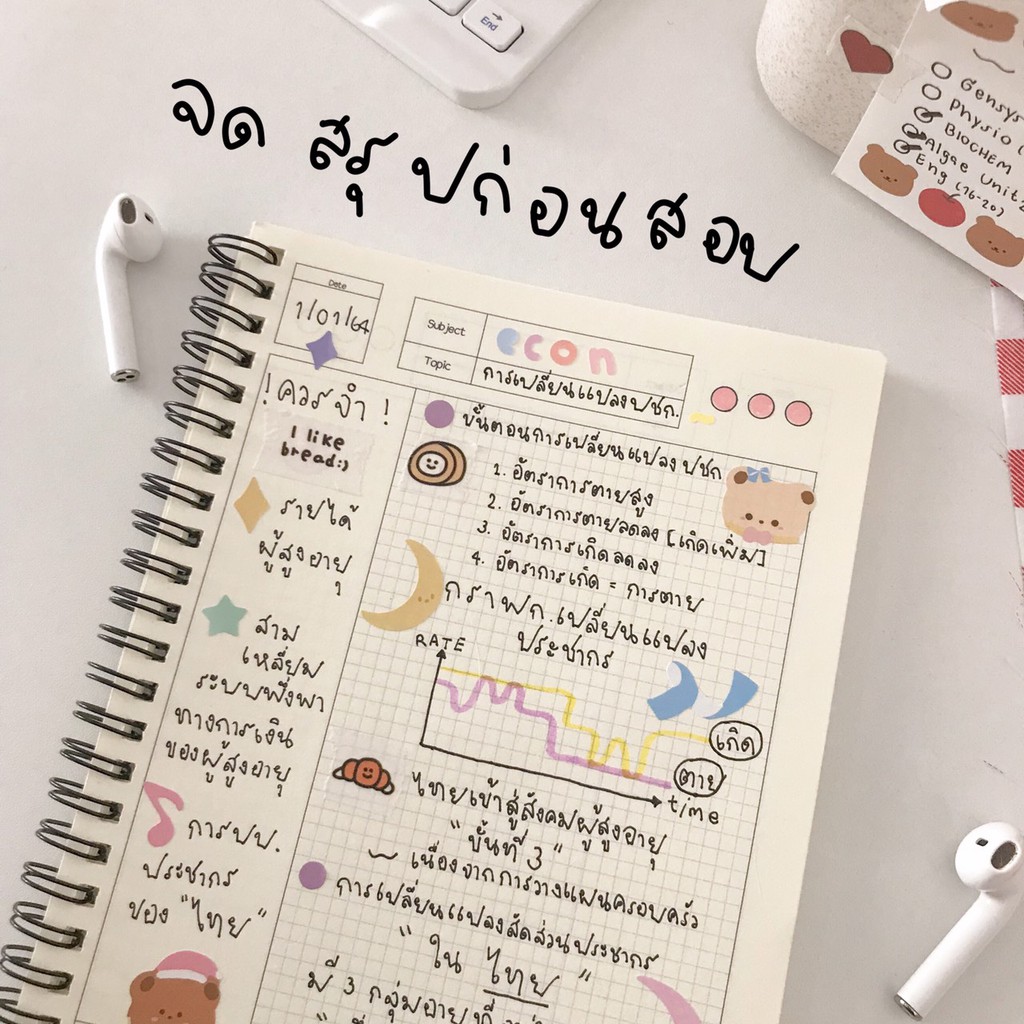 End
จด สรุปก่อนสอบ
Gensys
Physio
BIOCHEM
Algae Unit2
Eng (16-20)
Date
1/01/64
Subject
econ
Topic
การเปลี่ยนแปลงปชก.
!ควรจำ!
I like
bread:)
รายได้
ผู้สูงอายุ
สาม
เหลี่ยม
ระบบพึ่งพา
ทางการเงิน
ของผู้สูงอายุ
การปป.
ประชากร
ของ "ไทย"
ขั้นตอนการเปลี่ยนแปลง ปชก
1. อัตราการตายสูง
2. อัตราการตายลดลง [เกิดเพิ่ม]
3. อัตราการเกิดลดลง
4. อัตราการเกิด = การตาย
กราฟก.เปลี่ยนแปลง
ประชากร
RATE
เกิด
ตาย
time
ไทยเข้าสู่สังคมผู้สูงอายุ
"ขั้นที่ 3"
เนื่องจากการวางแผนครอบครัว
การเปลี่ยนแปลงสัดส่วนประชากร
"ใน ไทย"
มี 3 กลุ่มอายุที่